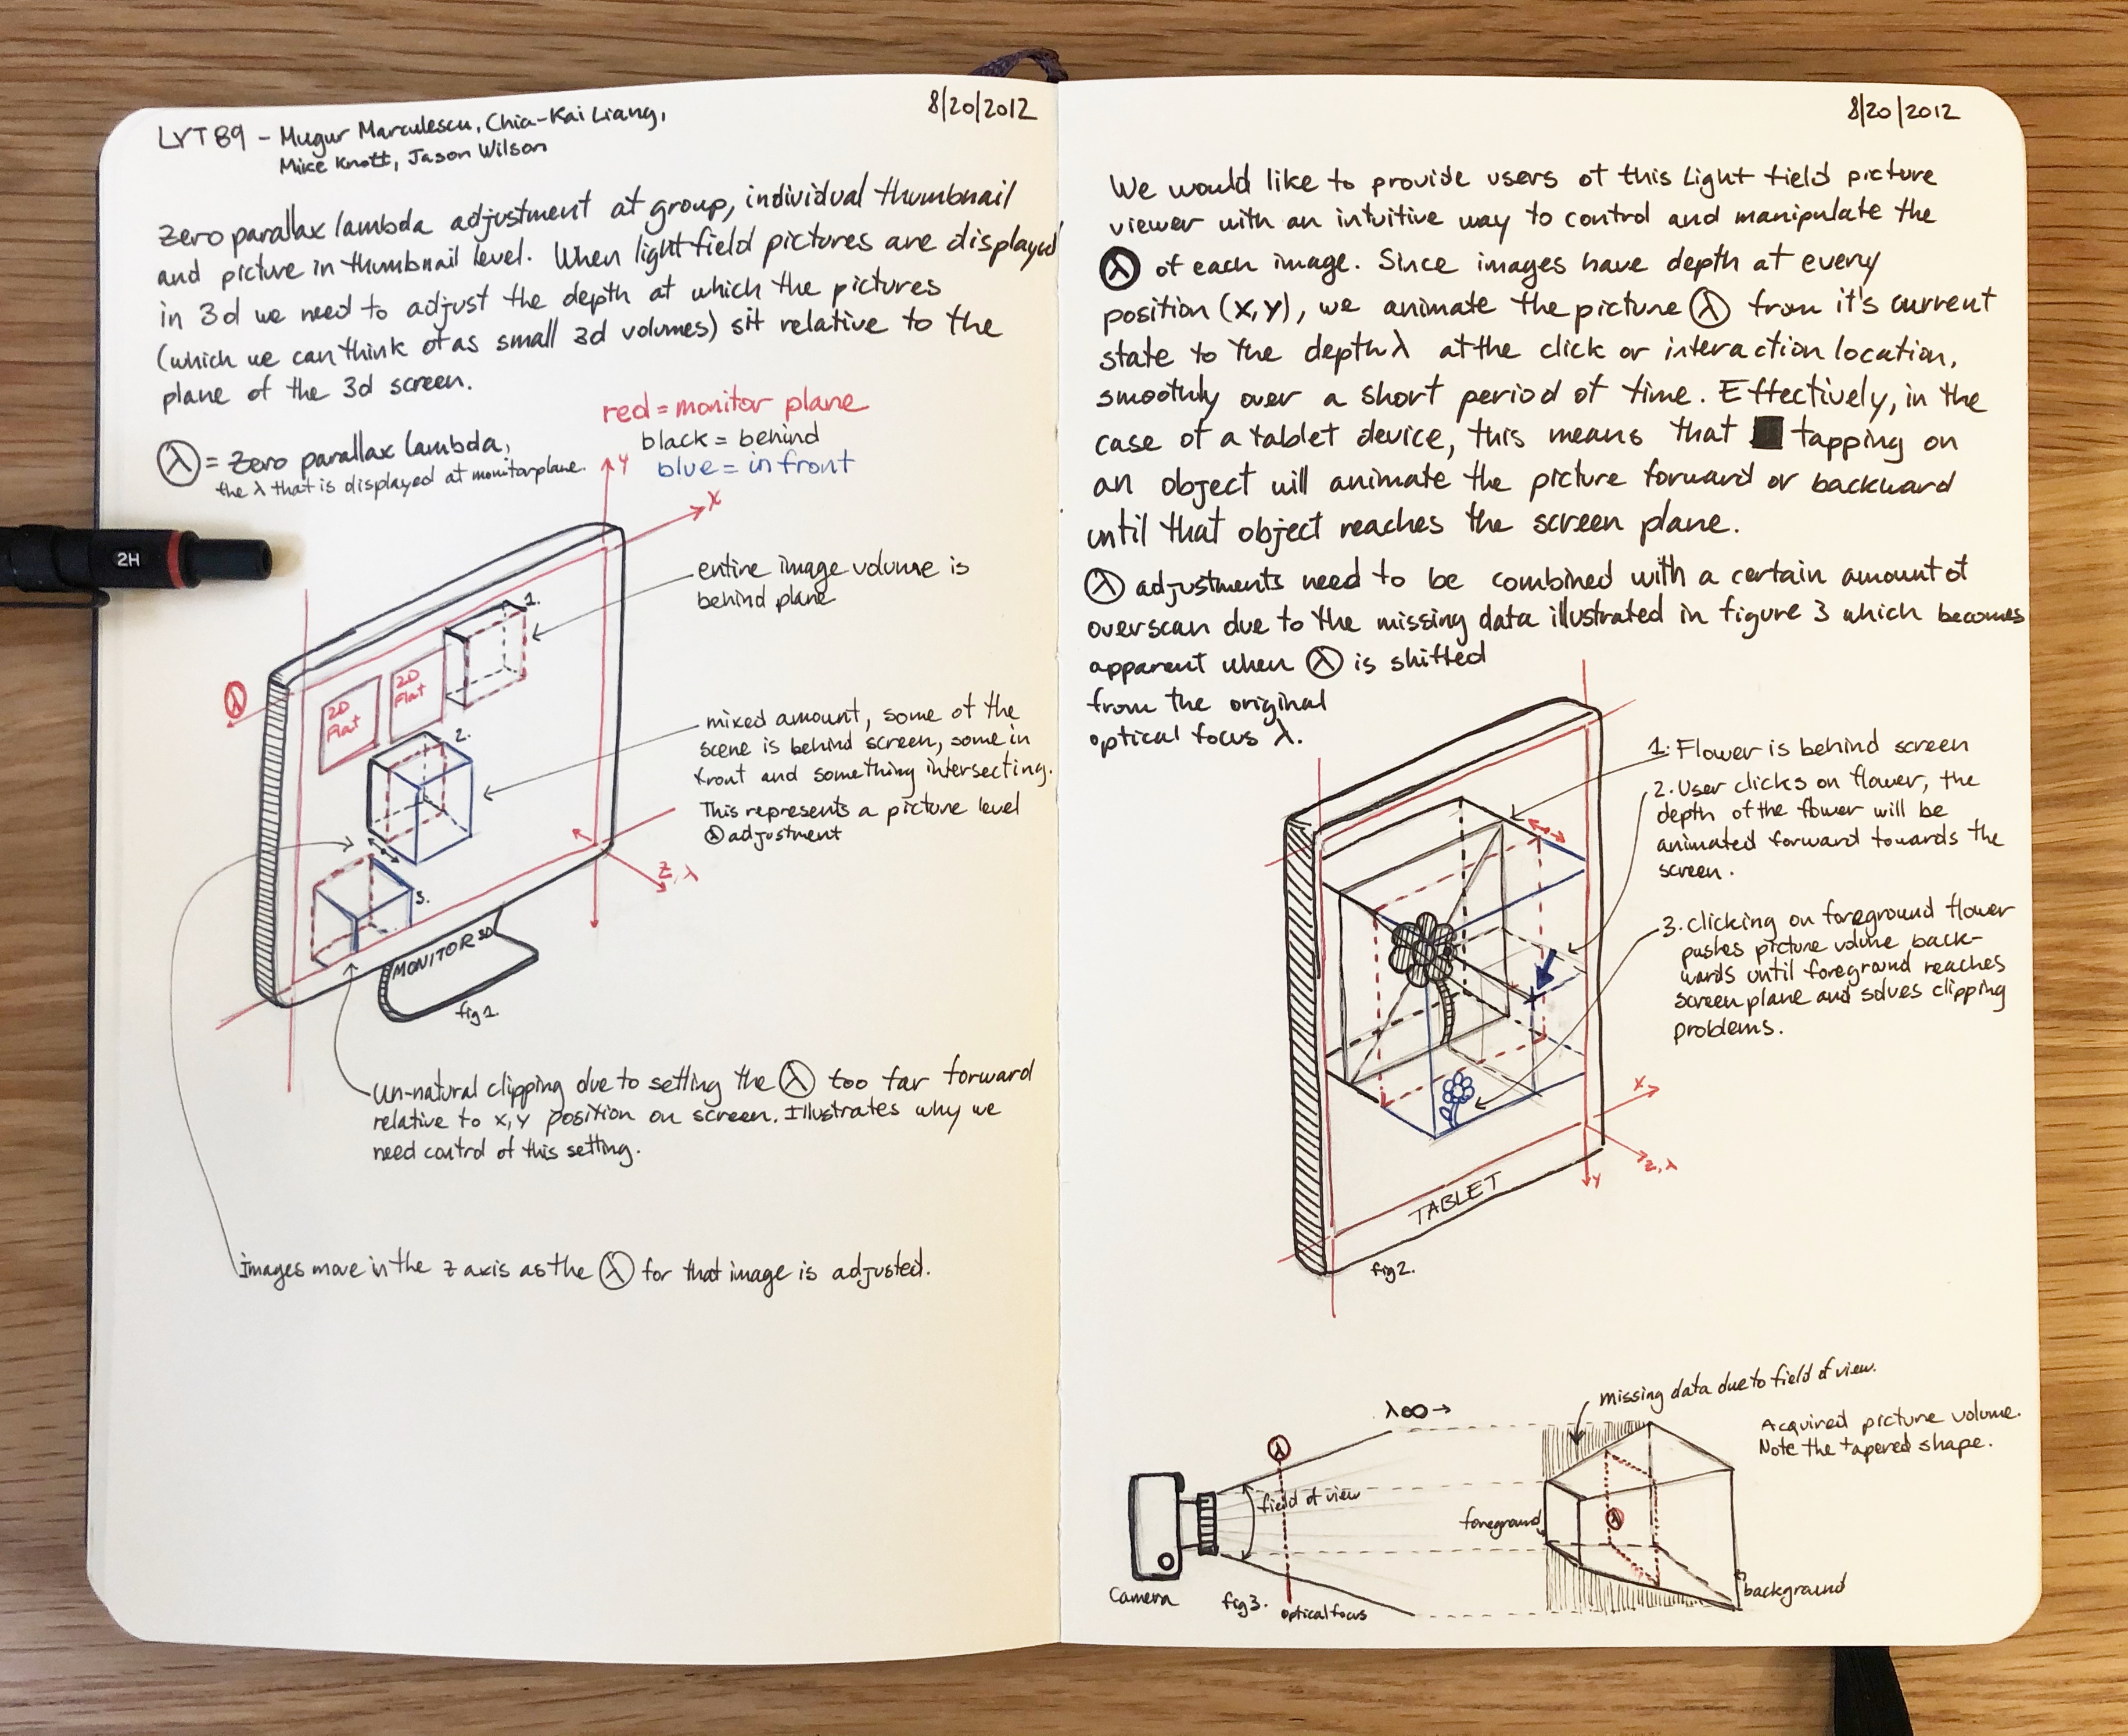 LYT 89 - Mugur Marculescu, Chia-Kai Liang,
Mike Knott, Jason Wilson
8/20/2012
Zero parallax lambda adjustment at group, individual thumbnail
and picture in thumbnail level. When light field pictures are displayed
in 3d we need to adjust the depth at which the pictures
(which we can think of as small 3d volumes) sit relative to the
plane of the 3d screen.
red = monitor plane
black = behind
blue = in front
λ = Zero parallax lambda,
the λ that is displayed at monitor plane.
Y
X
entire image volume is
behind plane
1.
2D
Flat
2D
Flat
λ
2.
mixed amount, some of the
scene is behind screen, some in
front and something intersecting.
This represents a picture level
λ adjustment
Z, λ
3.
MONITOR 3D
fig 1.
un-natural clipping due to setting the λ too far forward
relative to x,y position on screen. Illustrates why we
need control of this setting.
Images move in the z axis as the λ for that image is adjusted.
2H
8/20/2012
We would like to provide users of this Light field picture
viewer with an intuitive way to control and manipulate the
λ of each image. Since images have depth at every
position (x,y), we animate the picture λ from it's current
state to the depth λ at the click or interaction location,
smoothly over a short period of time. Effectively, in the
case of a tablet device, this means that tapping on
an object will animate the picture forward or backward
until that object reaches the screen plane.
λ adjustments need to be combined with a certain amount of
overscan due to the missing data illustrated in figure 3 which becomes
apparent when λ is shifted
from the original
optical focus λ.
1. Flower is behind screen
2. User clicks on flower, the
depth of the flower will be
animated forward towards the
screen.
3. Clicking on foreground flower
pushes picture volume back-
wards until foreground reaches
screen plane and solves clipping
problems.
X
Z, λ
Y
TABLET
fig 2.
missing data due to field of view.
λ∞→
Acquired picture volume.
Note the tapered shape.
λ
field of view
foreground
λ
background
Camera
fig 3.
optical focus